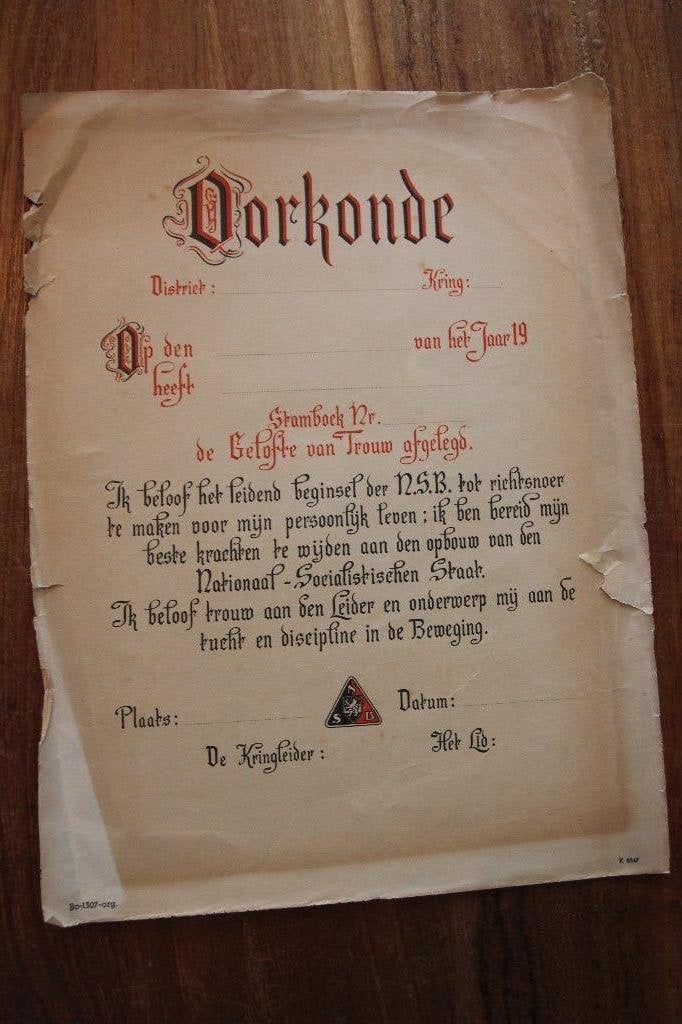 Oorkonde
District: Kring:
Op den van het Jaar 19
heeft
Stamboek Nr.
de Gelofte van Trouw afgelegd.
Ik beloof het leidend beginsel der N.S.B. tot richtsnoer
te maken voor mijn persoonlijk leven; ik ben bereid mijn
beste krachten te wijden aan den opbouw van den
Nationaal-Socialistischen Staat.
Ik beloof trouw aan den Leider en onderwerp mij aan de
tucht en discipline in de Beweging.
Plaats: N S B Datum:
De Kringleider: Het Lid:
Bo-1307-org. K 6347